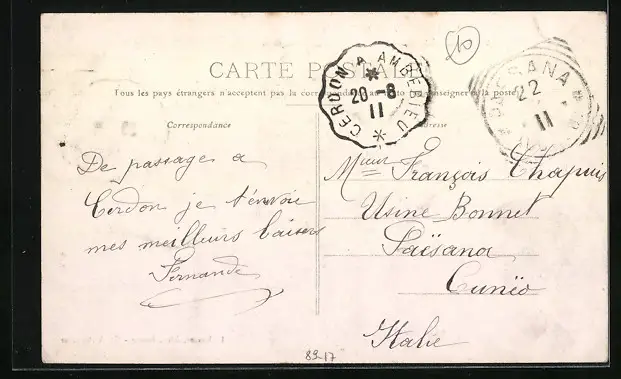 CARTE POSTALE
Tous les pays étrangers n'acceptent pas la correspondance au recto (se renseigner à la poste)
CERDON A AMBERIEU
20-8
11
PAESANA
22
11
10
Correspondance
Adresse
De passage a
Cerdon je t'envoie
mes meilleurs baisers
Fernande
Mme François Chapuis
Usine Bonnet
Païsana
Cunëo
Italie
89-17